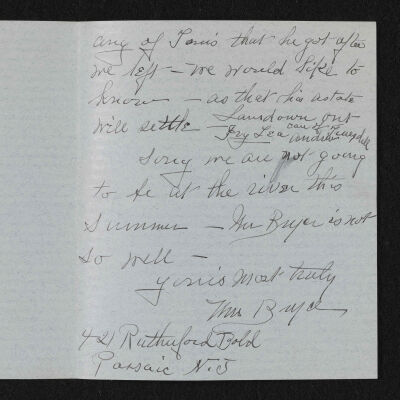 any of Tom's that he got after
we left – we would like to
know – as that his estate
will settle – Lansdown Ont
Ivy Lea
Sorry we are not going
to be at the river this
Summer – Mr Bryce is not
so well –
yours most truly
Mrs Bryce
421 Rutherford Bold
Passaic N.J